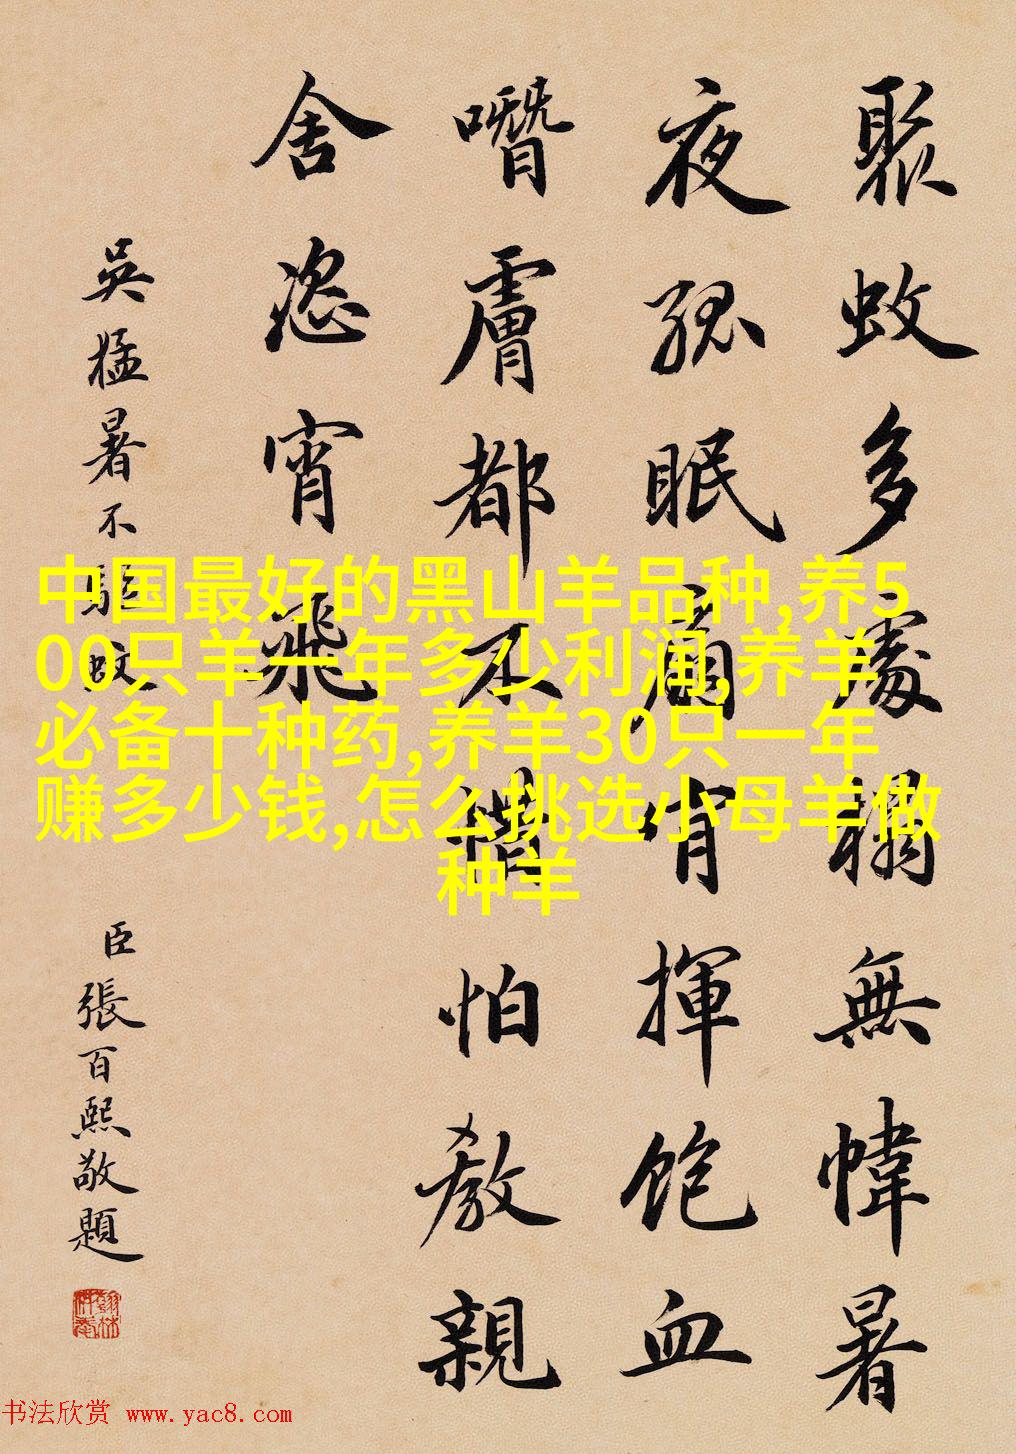 聚蚊多處榻無幃暑
夜孤眠扇肯揮飽血
噆膚都不怕教親
舍恣宵飛
吳猛暑不驅蚊
臣張百熙敬題
中国最好的黑山羊品种,养5
00只羊一年多少利润,养羊
必备十种药,养羊30只一年
赚多少钱,怎么挑选小母羊做
种羊
书法欣赏 www.yac8.com